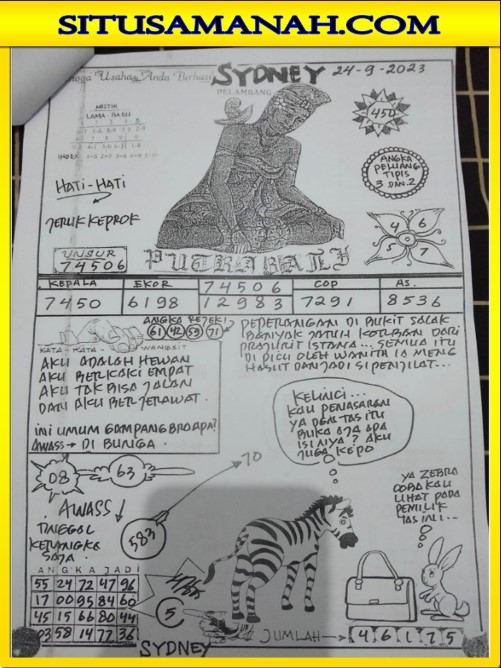 SITUSAMANAH.COM
Usaha Anda Berhasil
SYDNEY 24-9-2023
PELAMBANG
MISTIK
LAMA - BARU
INDEX
450
ANGKA
PELUANG
TIPIS
3 DAN 2
HATI-HATI
JERUK KEPROK
4 6
5 7
UNSUR
74506
PUTRA BALI
KEPALA EKOR 74506 COP AS.
7450 6198 12983 7291 8536
ANGKA REJEKI
61 42 59 71
KATA - KATA WANGSIT
AKU ADALAH HEWAN
AKU BERKAKI EMPAT
AKU TAK BISA JALAN
DAN AKU BERJERAWAT.
INI UMUM GAMPANG BROAPA?
AWASS → DI BUNGA.
PEPERANGAN DI BUKIT SALAK
BANYAK JATUH KORBAN DARI
PRAJURIT ISTANA... SEMUA ITU
DI PICU OLEH WANITA IA MENG
HASUT DAN JADI SI PENJILAT...
KELINCI...
KAU PENASARAN
YA DGN TAS ITU
BUKA AJA APA
ISINYA? AKU
JUGA KEPO
08 63
70
AWASS
TINGGAL
KETANGKA
SAJA.
583
YA ZEBRA
COBA KAU
LIHAT PADA
PEMILIK
TAS INI...
ANGKA JADI
55 24 72 47 96
17 00 95 84 60
45 15 66 80 44
03 58 14 77 36
5
SYDNEY
JUMLAH → 4 6 1 7 5